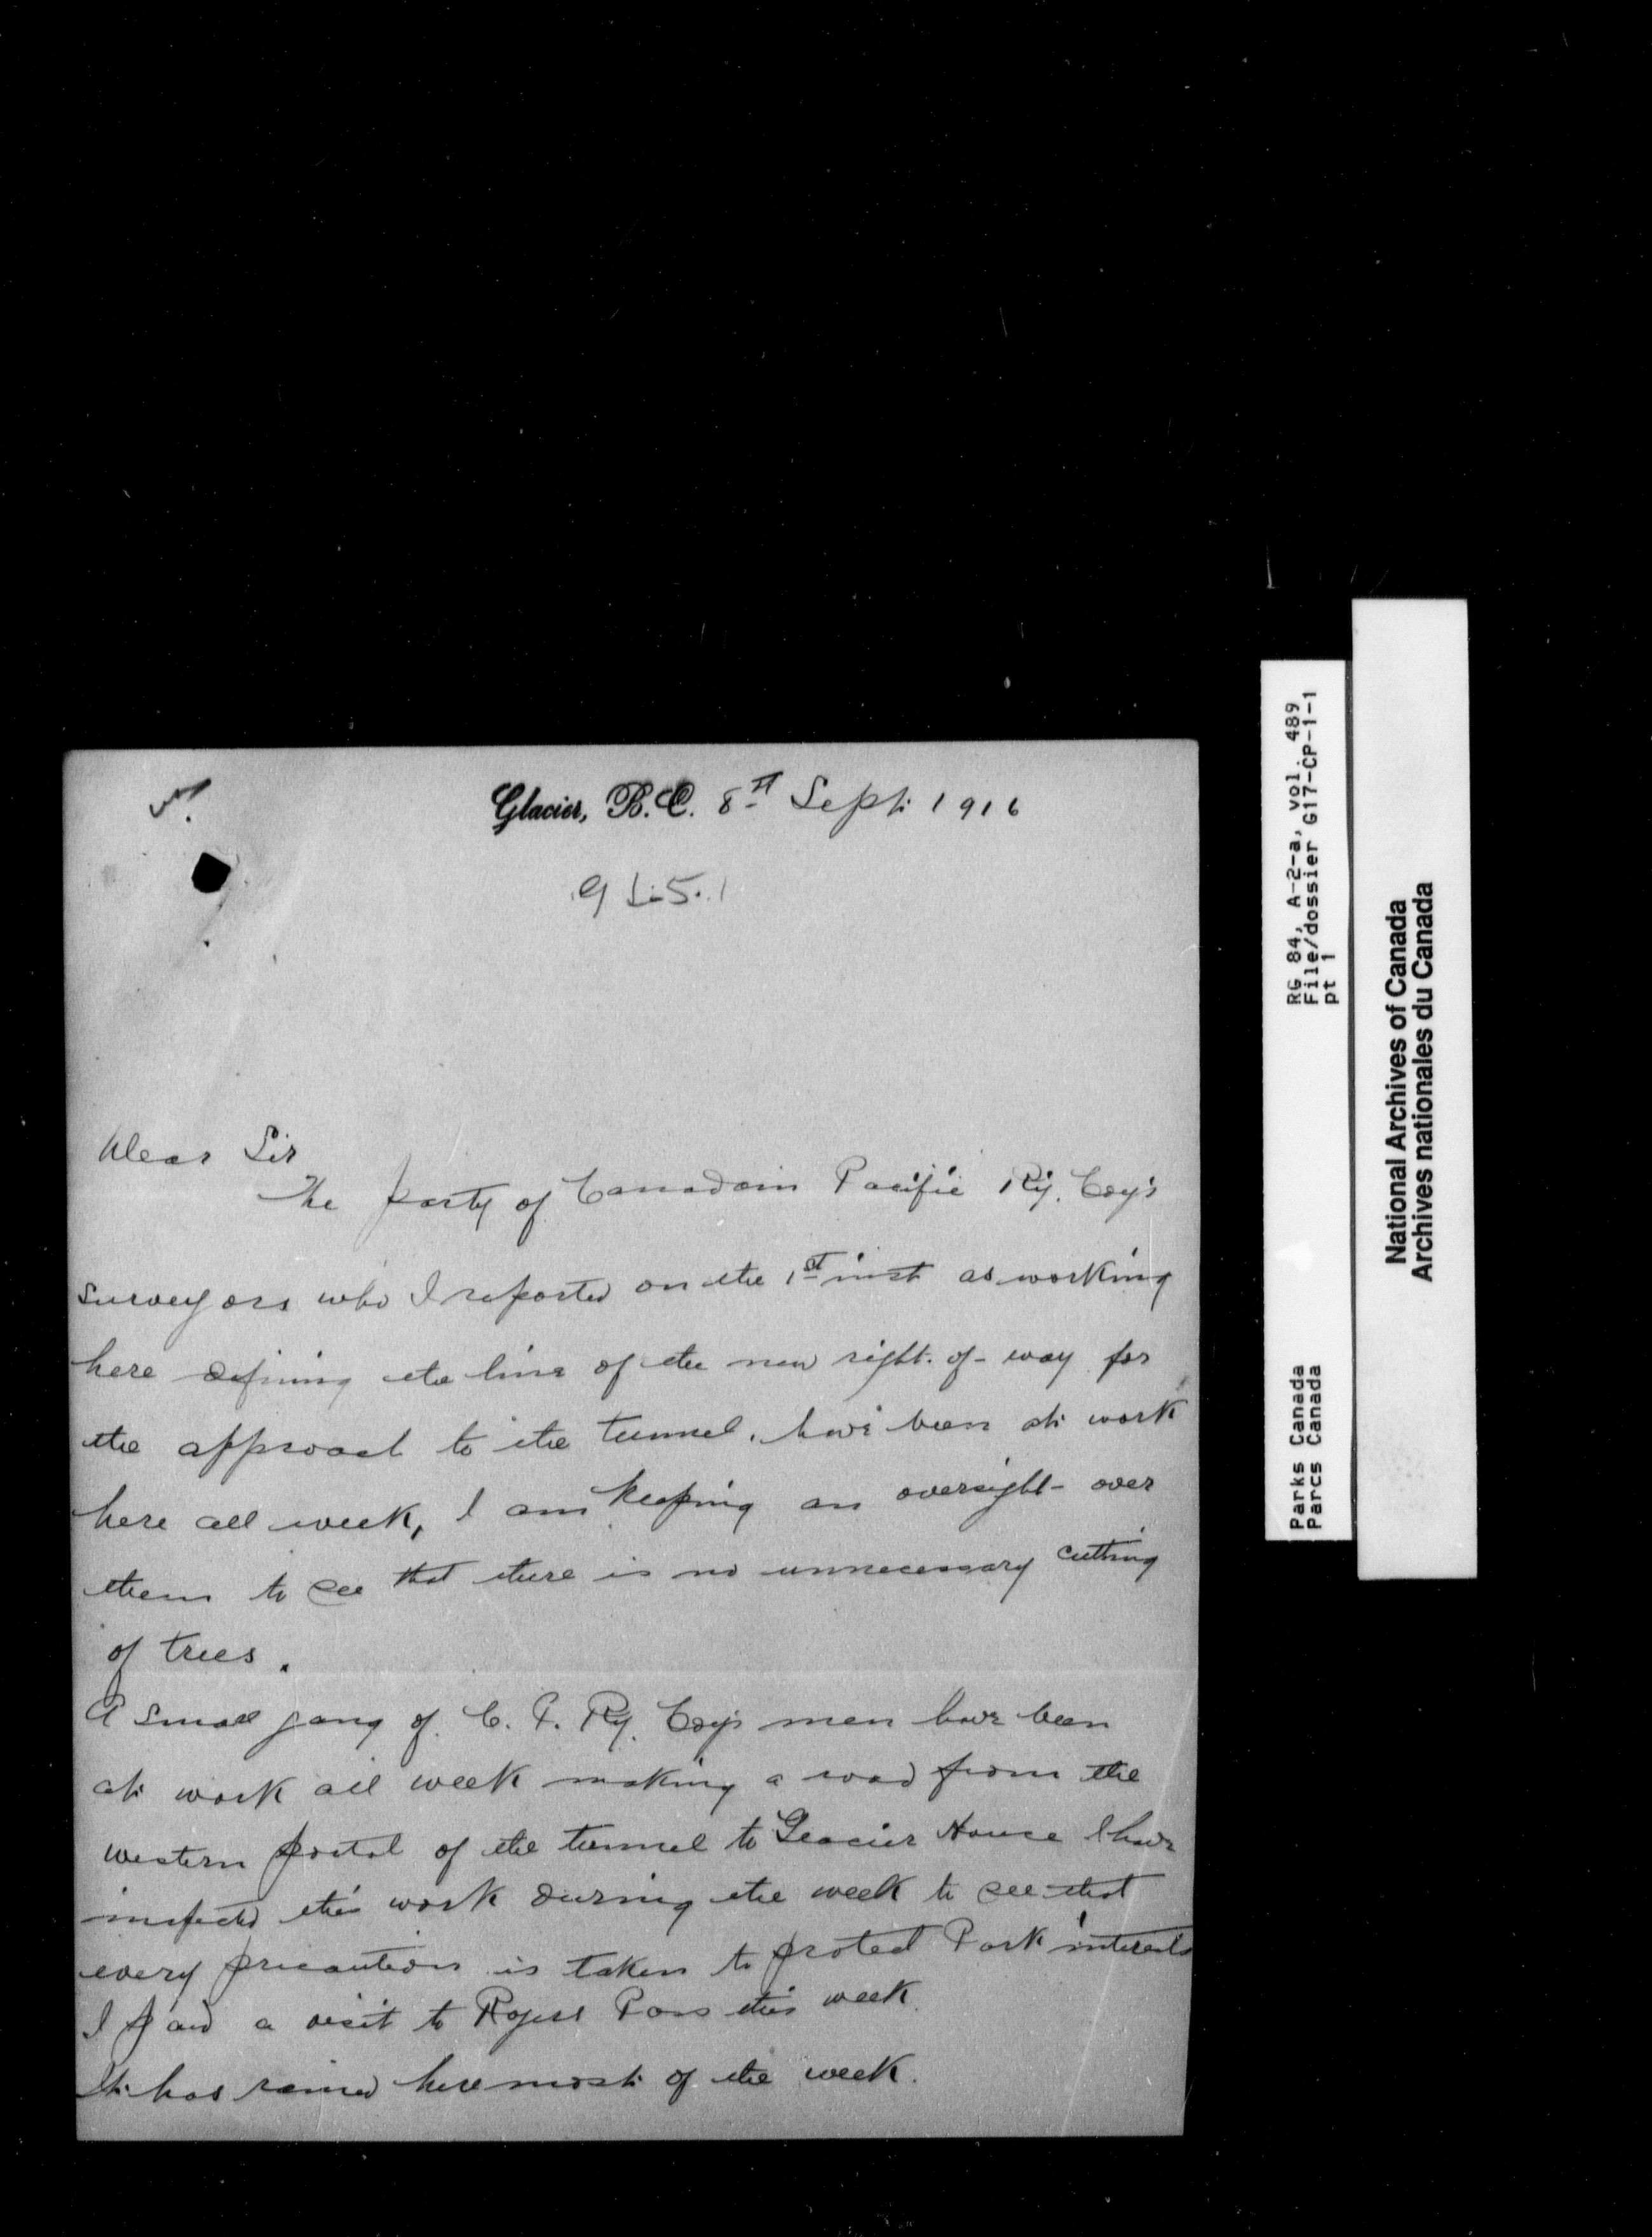 Glacier, B.C. 8th Sept. 1916
Dear Sir
The party of Canadain Pacific Ry. Coy's
surveyors who I reported on the 1st inst as working
here defining the line of the new right-of-way for
the approach to the tunnel, have been at work
here all week, I am keeping an oversight over
them to see that there is no unnecessary cutting
of trees.
A small gang of C. P. Ry. Coy's men have been
at work all week making a road from the
western portal of the tunnel to Glacier House I have
inspected this work during the week to see that
every precaution is taken to protect Park interests
I paid a visit to Rogers Pass this week.
It has rained here most of the week.
RG 84, A-2-a, vol. 489
File/dossier G17-CP-1-1
pt 1
Parks Canada
Parcs Canada
National Archives of Canada
Archives nationales du Canada